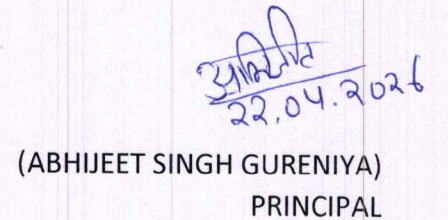 अभिजीत
२२.०४.२०२६
(ABHIJEET SINGH GURENIYA)
PRINCIPAL